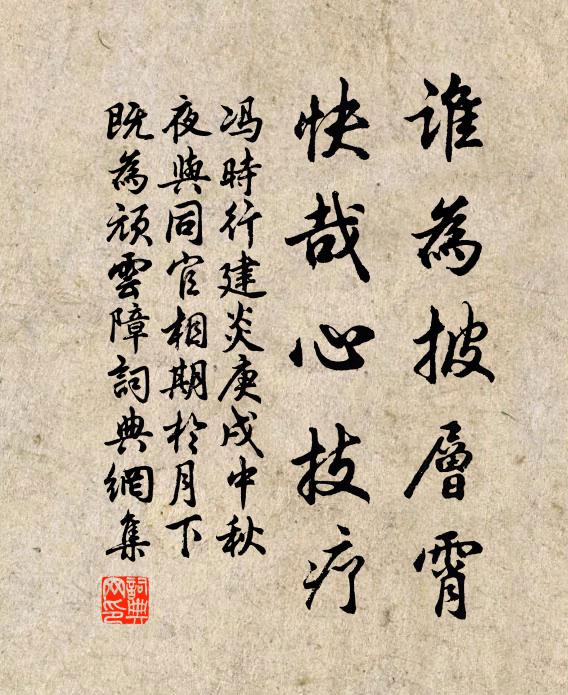 谁為披層霄
快哉心技疗
冯時行建炎庚戌中秋
夜與同官相期於月下
既為頑雲障詞典網集